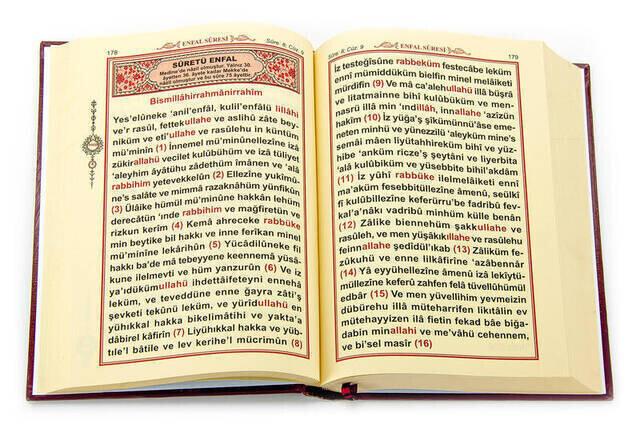 178
ENFAL SÛRESİ
Sûre: 8, Cüz: 9
SÛRETÜ ENFAL
Medine'de nâzil olmuştur. Yalnız 30.
âyetten 36. âyete kadar Mekke'de
nâzil olmuştur ve bu sûre 75 âyettir.
Bismillâhirrahmânirrahîm
Yes'elûneke 'anil'enfâl, kulil'enfâlü lillâhi
ve'r rasûl, fettekullahe ve aslihû zâte bey-
niküm ve etî'ullahe ve rasûlehu in küntüm
mü'minîn (1) İnnemel mü'minûnellezîne izâ
zükirallahü vecilet kulûbühüm ve izâ tüliyet
'aleyhim âyâtühu zâdethüm îmânen ve 'alâ
rabbihim yetevekkelûn (2) Ellezîne yukîmû-
ne's salâte ve mimmâ razaknâhüm yünfikûn
(3) Ülâike hümül mü'minûne hakkân lehüm
derecâtün 'ınde rabbihim ve mağfiretün ve
rizkun kerîm (4) Kemâ ahreceke rabbüke
min beytike bil hakkı ve inne ferîkan minel
mü'minîne lekârihûn (5) Yücâdilûneke fil
hakkı ba'de mâ tebeyyene keennemâ yüsâ-
kune ilelmevti ve hüm yanzurûn (6) Ve iz
ya'ıdükümullahü ihdettâifeteyni ennehâ
leküm, ve teveddüne enne ğayra zâti'ş
şevketi tekûnü leküm, ve yürîdullahü en
yühıkkal hakka bikelimâtihî ve yakta'a
dâbirel kâfirîn (7) Liyühıkkal hakka ve yüb-
tıle'l bâtile ve lev kerihe'l mücrimûn (8)
Sûre: 8, Cüz: 9
ENFAL SÛRESİ
179
İz testeğîsûne rabbeküm festecâbe leküm
ennî mümiddüküm bielfin minel melâiketi
mürdifîn (9) Ve mâ ca'alehullahü illâ büşrâ
ve litatmainne bihî kulûbüküm ve men-
nasrü illâ min 'ındillâh, innallahe 'azîzün
hakîm (10) İz yüğa'ş şîkümünnü'âse eme-
neten minhü ve yünezzilü 'aleyküm mine's
semâi mâen liyütahhireküm bihî ve yüz-
hibe 'anküm ricze'ş şeytâni ve liyerbita
'alâ kulûbiküm ve yüsebbite bihil'akdâm
(11) İz yûhî rabbüke ilelmelâiketi ennî
ma'aküm fesebbitüllezîne âmenû, seülkî
fî kulûbillezîne keferürru'be fadribû fev-
kal'a'nâkı vadribû minhüm külle benân
(12) Zâlike biennehüm şakkullahe ve
rasûleh, ve men yüşâkıkıllahe ve rasûlehu
feinnallahe şedîdül'ıkab (13) Zâliküm fe-
zûkûhü ve enne lilkâfirîne 'azâbennâr
(14) Yâ eyyühellezîne âmenû izâ lekîytü-
müllezîne keferû zahfen felâ tüvellûhümül
edbâr (15) Ve men yüvellihim yevmeizin
dübürehu illâ müteharrifen likıtâlin ev
mütehayyizen ilâ fietin fekad bâe biğa-
dabin minallahi ve me'vâhü cehennem,
ve bi'sel masîr (16)